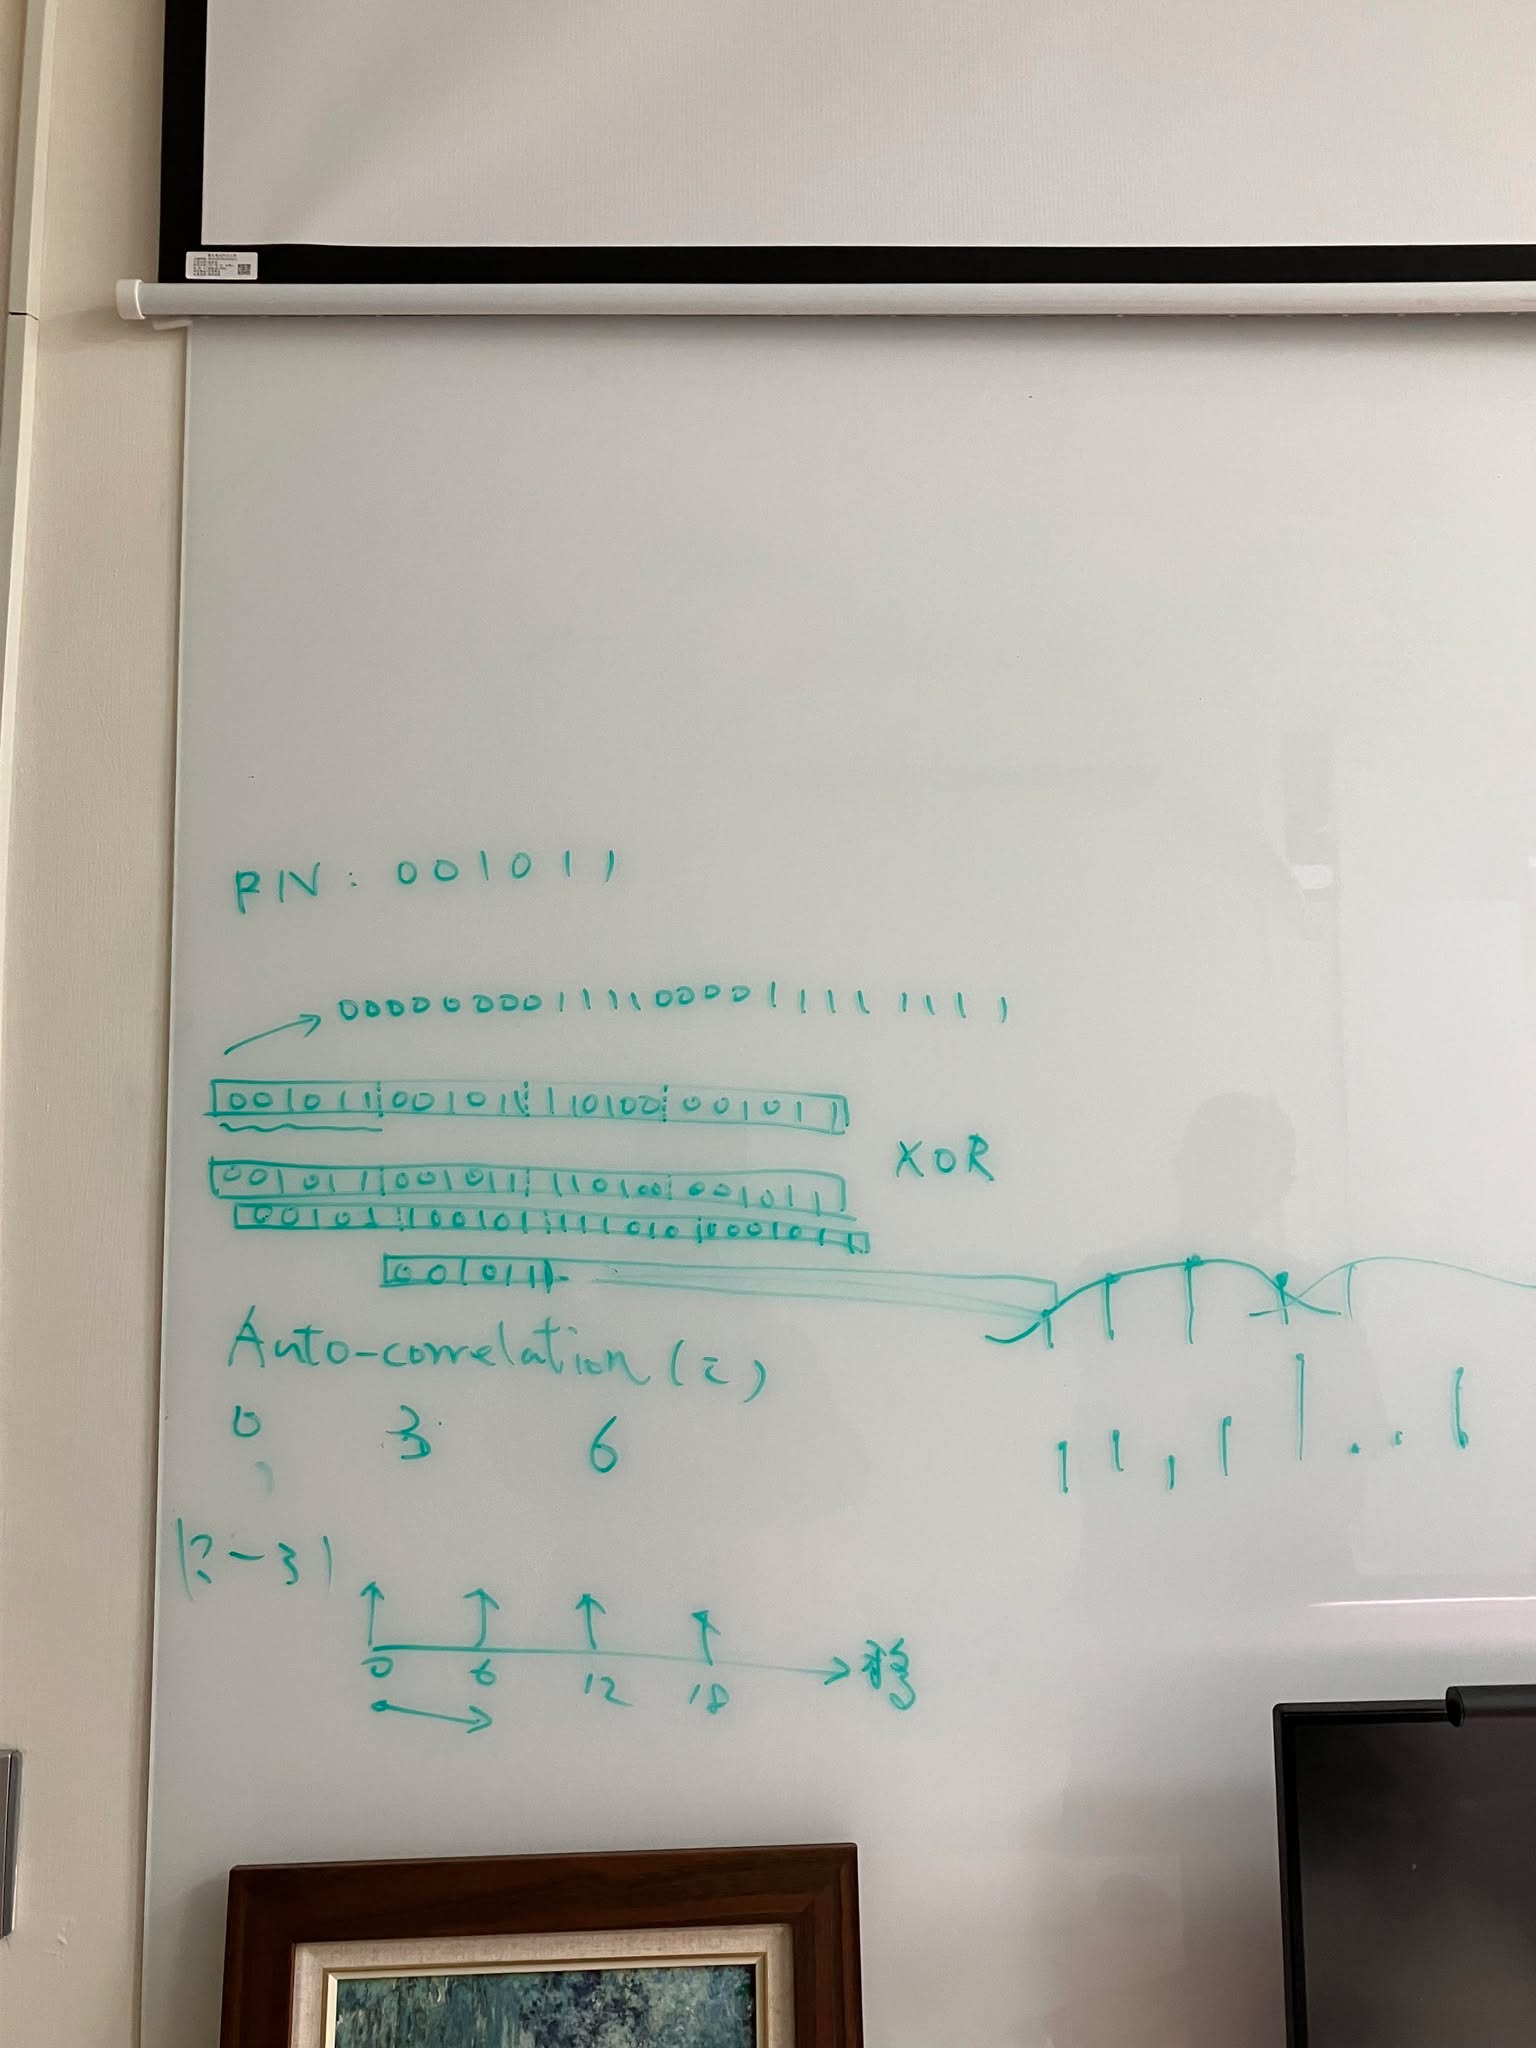 PN: 001011
00000000111100001111 1111
001011 001011 110100 001011
001011 001011 110100 001011
XOR
00101 100101 111010 0001011
001011
Auto-correlation (τ)
0 3 6
|?-3|
0 6 12 18 移